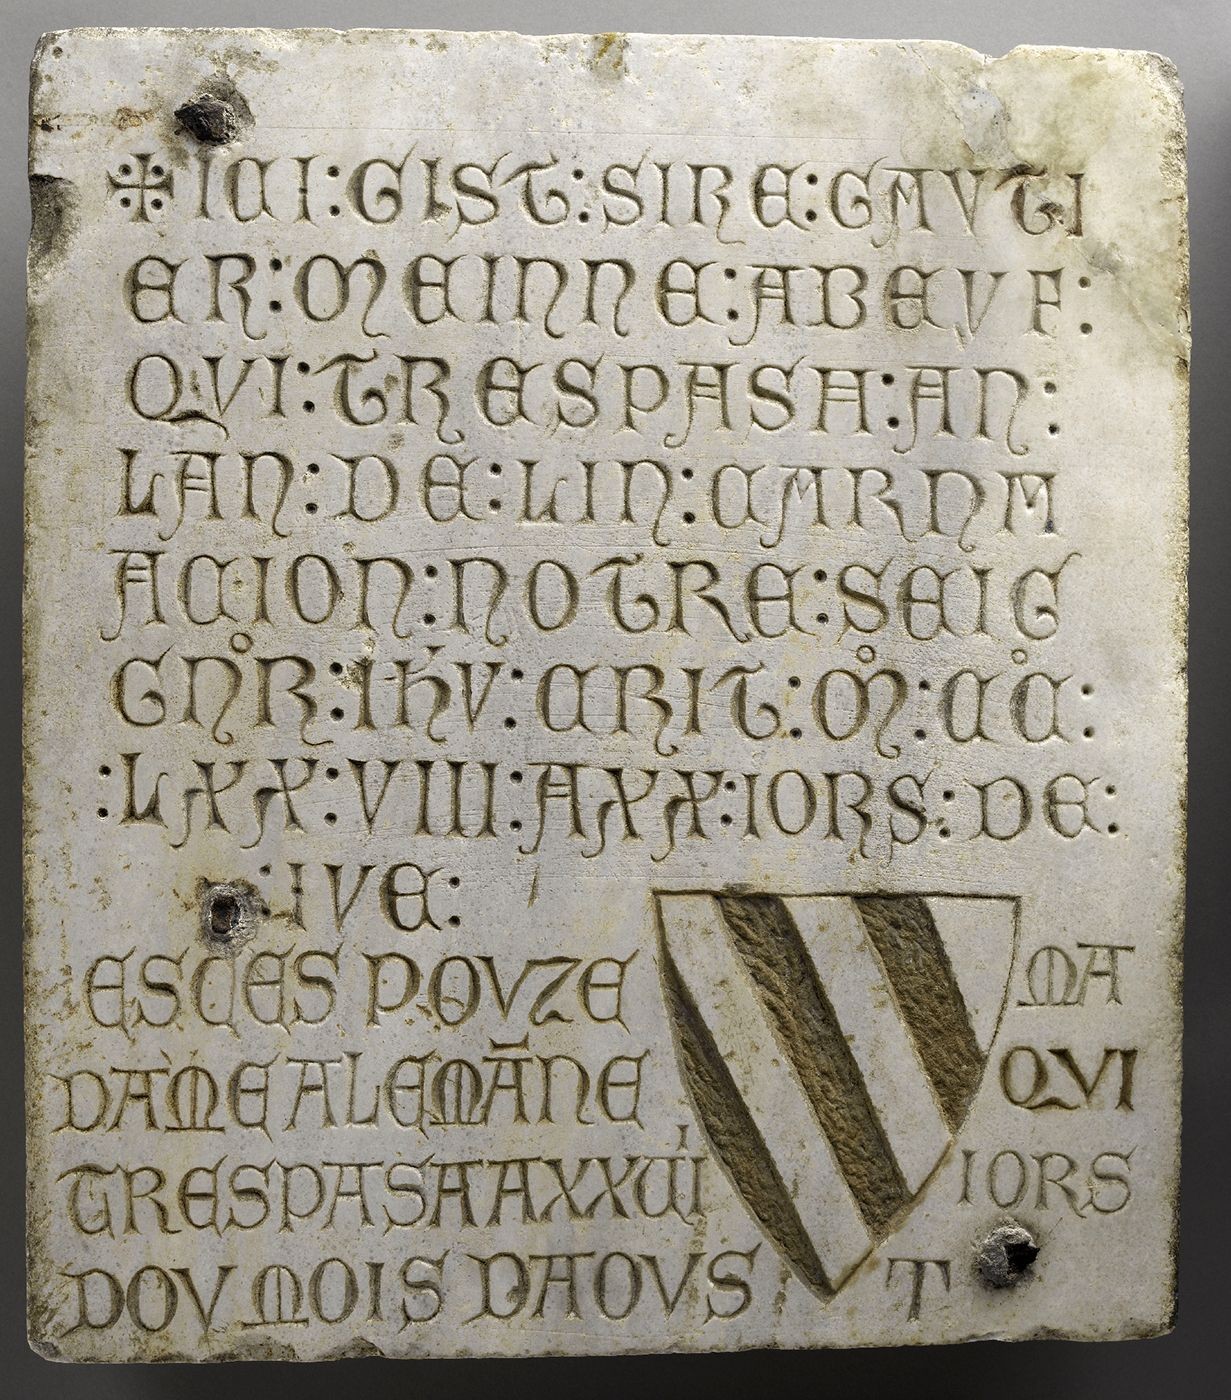 ✠ ICI : GIST : SIRE : GAUTI
ER : MEINNE : ABEUF :
QVI : TRESPASA : AN :
LAN : DE : LIN : CARNA
ACION : NOTRE : SEIG
GNR : IHV : CRIT : M : CC :
: LXX : VIII : A XX : IORS : DE :
: IVE :
ESCES POVZE MA
DAME ALEMANE QVI
TRESPASA A XXVI IORS
DOV MOIS DAOVS T